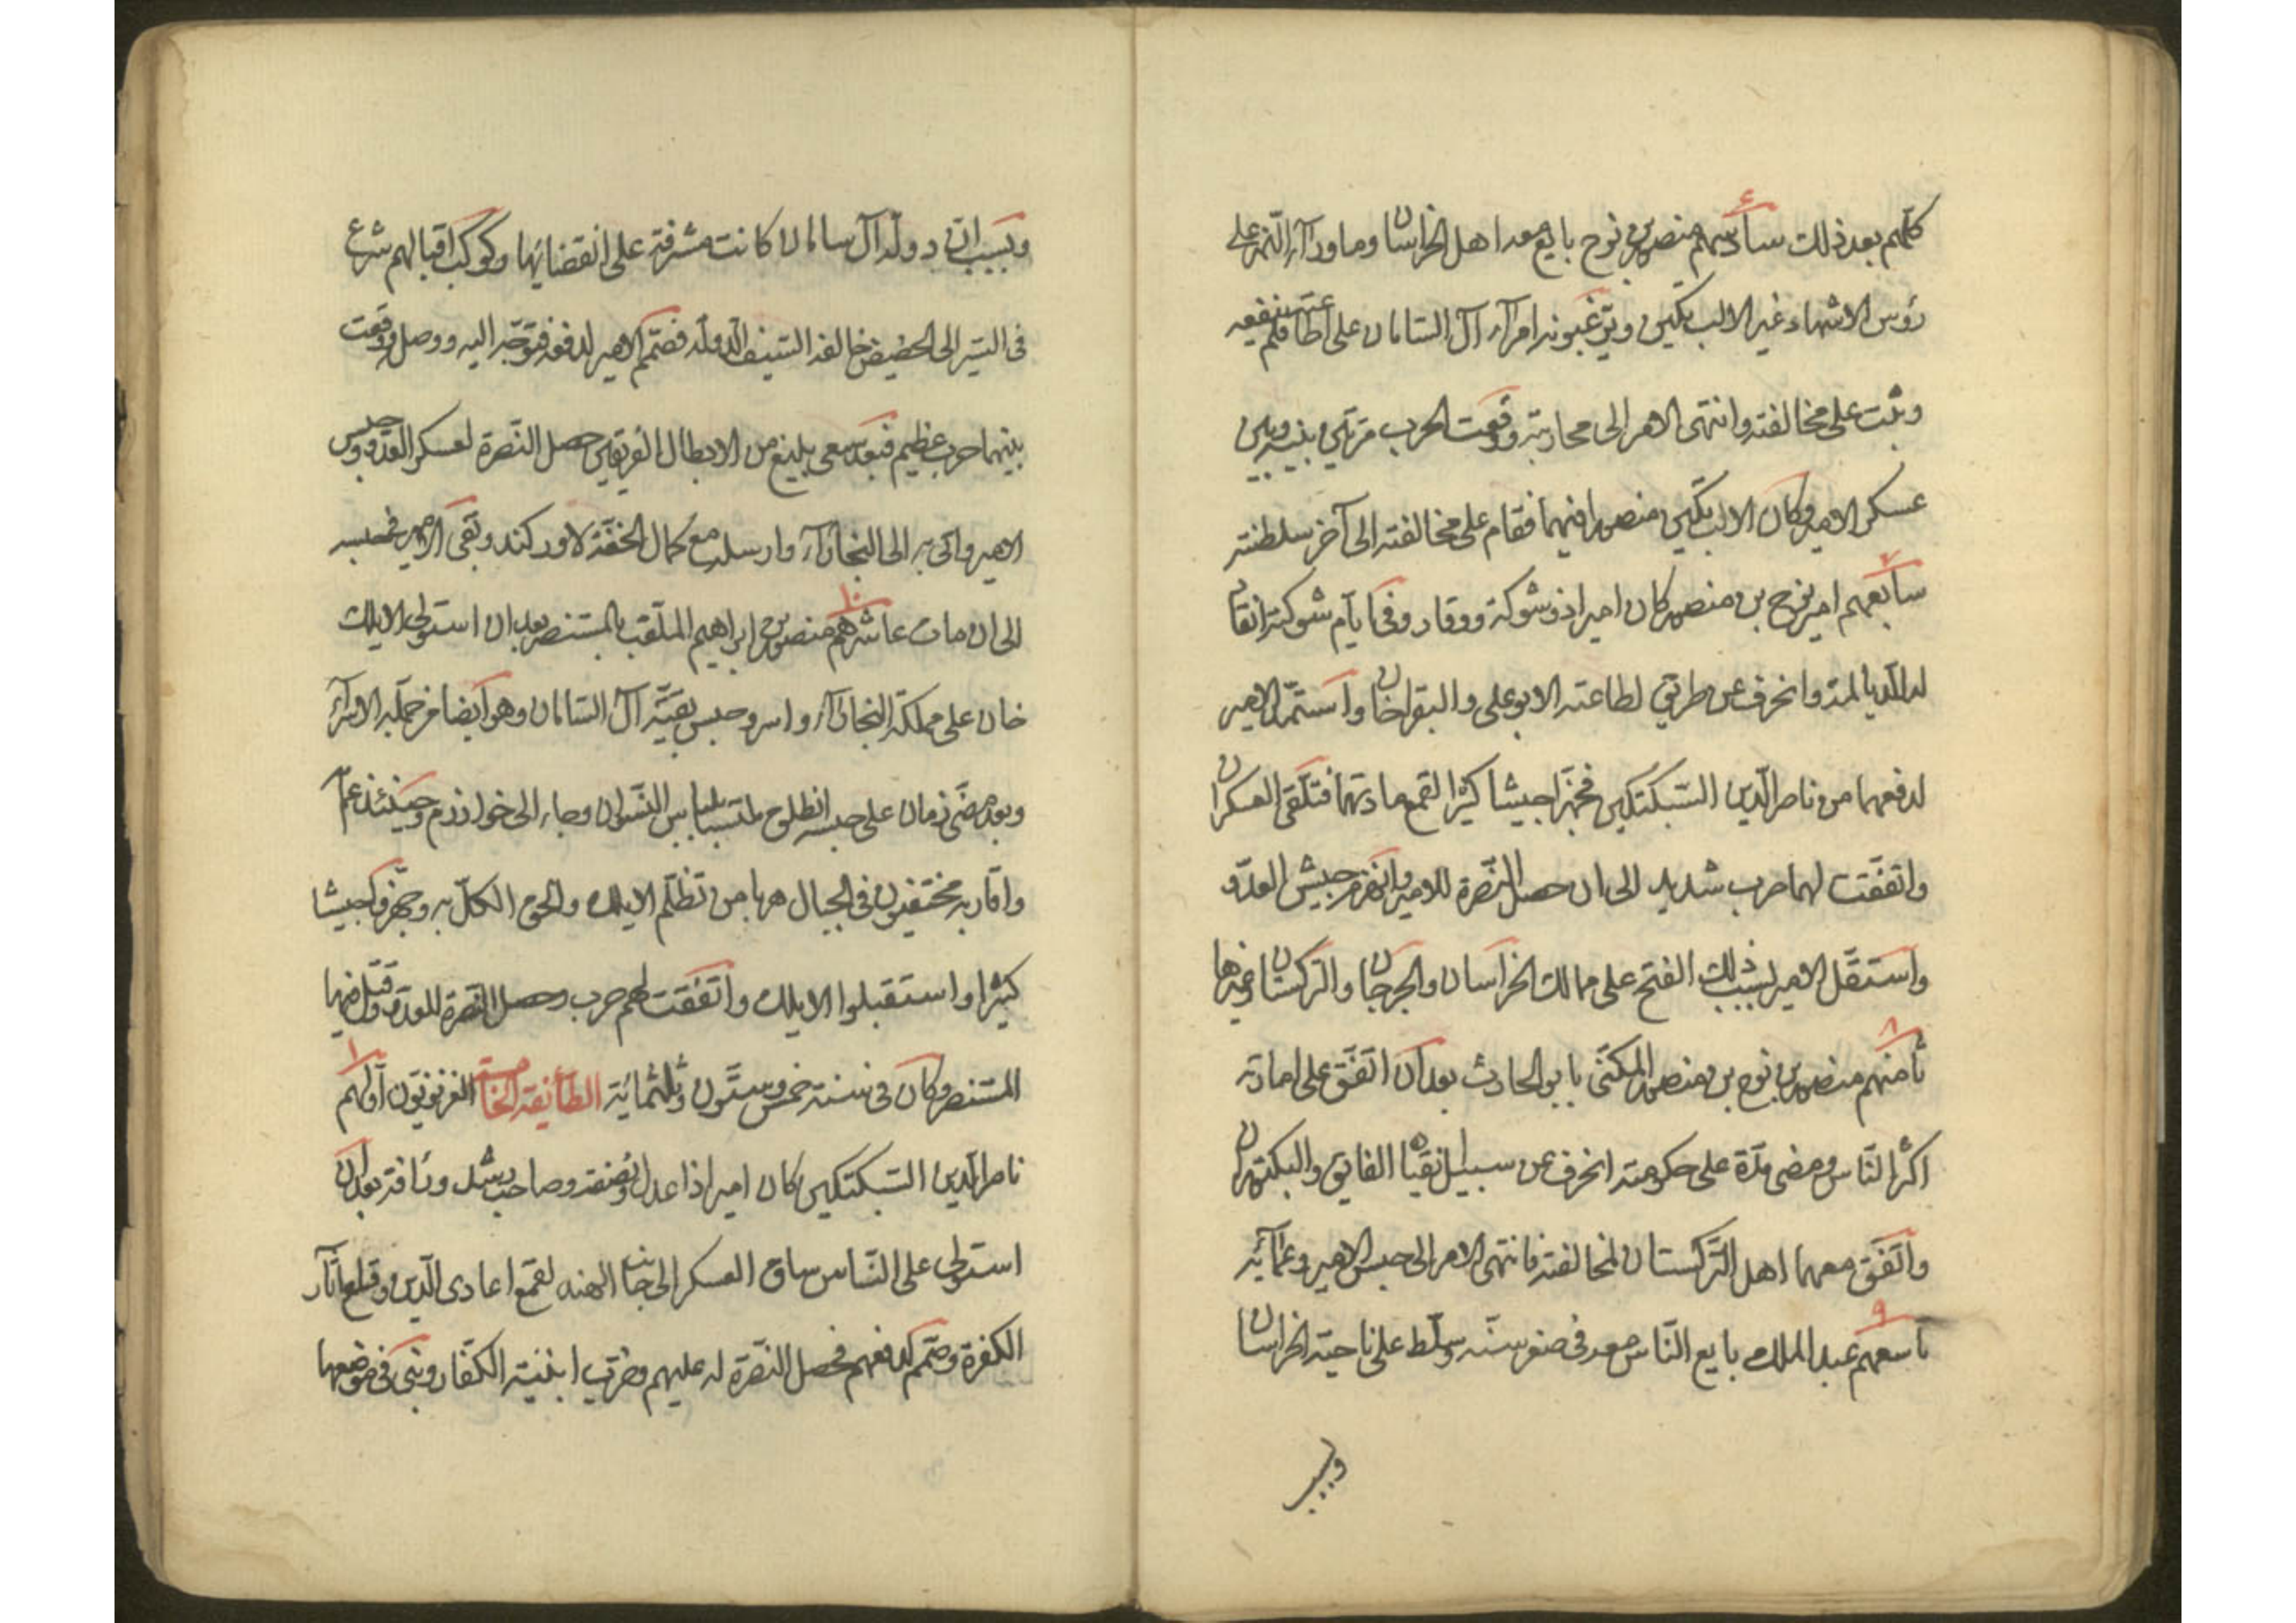 كلّهم بعد ذلك سادسهم منصور بن نوح بايع معه اهل الخراسان وما ورآء النّهر على
رؤس الاشهاد غير الالب تكين ويرّغبونه امرآء آل السّامان على اطاعته فلم ينفعه
وثبت على مخالفته وانتهى الامر الى محاربته ووقعت الحرب مرّتين بينه وبين
عسكر الامير وكان الالب تكين منصورا فيهما فقام على مخالفته الى آخر سلطنته
سابعهم امير نوح بن منصور كان اميرا ذو شوكة ووقار وفى ايّام شوكته انقام
له الديالمة وانحرف عن طريق لطاعته الابو على والبقراخان واستمدّ الامير
لدفعهما من ناصر الدّين السّبكتكين فجهّزا جيشا كثيرا لقمع مادتهما فتلقى العسكران
واتفقت لهما حرب شديد الى ان حصل النّصرة للامير وانهزم جيش العدّو
واستقلّ الامير بسبب ذلك الفتح على ممالك الخراسان والجرجان والتركستان وغيرها
ثامنهم منصور بن نوح بن منصور المكنّى بابو الحارث بعد ان اتّفق على امارته
اكثر النّاس ومضى مدّة على حكومته انحرف عن سبيل انقياده الفايق والبكتوزن
واتّفق معهما اهل التّركستان لمخالفته فانتهى الامر الى حبس الامير وعمائه
تاسعهم عبد الملك بايع النّاس معه فى صغر سنّه وسلّط على ناحية الخراسان
وبسبب
وبسبب انّ دولة آل سامان كانت مشرفة على انقضائها وكوكب اقبالهم شرع
فى السّير الى الحضيض خالفه السّيف الدّولة فصمّم الامير لدفعه فتوجّه اليه ووصل ووقعت
بينهما حرب عظيم فبعد سعى بليغ من الابطال الفريقين حصل النّصرة لعسكر العدّو وحبس
الامير واتى به الى البخارآء وارسله مع كمال الخفّة لاوركند وبقى الامير فى حبسه
الى ان مات عاشرهم منصور بن ابراهيم الملقّب بالمستنصر بعد ان استولى الايلك
خان على مملكة البخارآء واسر وحبس بقيّة آل السّامان وهو ايضا من جملة الاسرآء
وبعد مضّى زمان على حبسه انطلق ملتبسا بلباس النّسوان وجاء الى خوارزم وحينئذ عمّاه
واقاربه مختفيون فى الجبال هربا من تظلّم الايلك والحق الكلّ به وجهّزوا جيشا
كثيرا واستقبلوا الايلك واتّفقت لهم حرب وحصل النّصرة للعدّو وقتل فيها
المستنصر وكان فى سنة خمس وستّون وثلثمائة الطّائفة الخامسة الغزنويّون اوّلهم
ناصر الدّين السّبكتكين كان اميرا ذا عدل ونصفة وصاحب رشد ورأفة بعد ان
استولى على النّاس ساق العسكر الى جانب الهند لقمع اعادى الدّين وقلع آثار
الكفرة وصمّم لدفعهم فحصل النّصرة له عليهم وخرّب ابنية الكفّار وبنى فى موضعها